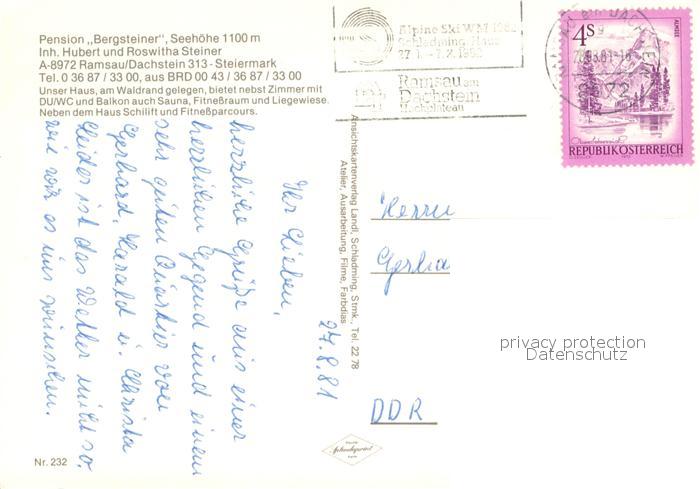 Pension „Bergsteiner", Seehöhe 1100 m
Inh. Hubert und Roswitha Steiner
A-8972 Ramsau/Dachstein 313 - Steiermark
Tel. 0 36 87 / 33 00, aus BRD 00 43 / 36 87 / 33 00
Unser Haus, am Waldrand gelegen, bietet nebst Zimmer mit
DU/WC und Balkon auch Sauna, Fitneßraum und Liegewiese.
Neben dem Haus Schilift und Fitneßparcours.
Alpine Ski WM 1982
Schladming, Haus
27. 1. - 7. 2. 1982
Ramsau am
Dachstein
4 S
ALMSEE
REPUBLIK ÖSTERREICH
27.8.81
Ihr Lieben,
herzliche Grüße aus einer
herrlichen Gegend und einem
sehr guten Quartier von
Gerhard, Harald u. Christa
Leider ist das Wetter nicht so,
wie wir es uns wünschen.
Ansichtskartenverlag Landl, Schladming, Stmk., Tel. 22 78
Atelier, Ausarbeitung, Filme, Farbdias
Herrn
Gerlia
DDR
privacy protection
Datenschutz
Nr. 232